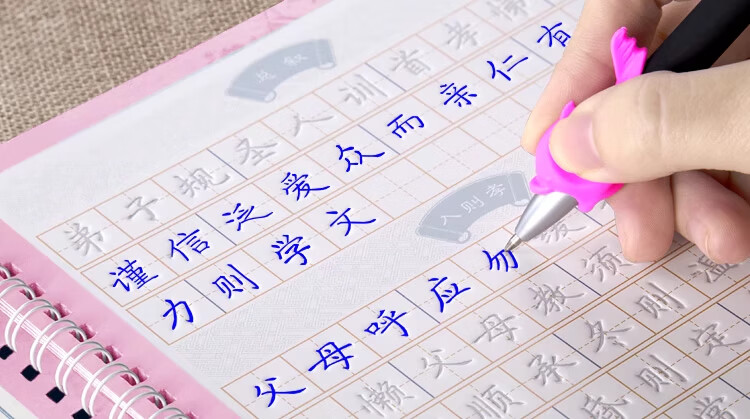 总叙
弟子规圣人训首孝悌
谨信泛爱众而亲仁有
力则学文
入则孝
父母呼应勿缓
懒父母教须
顺承冬则温
则定